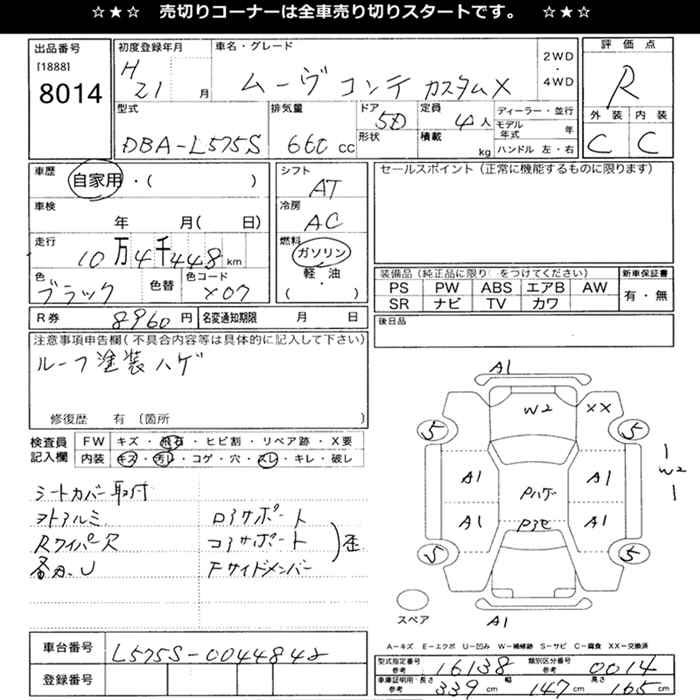 ☆★☆ 売切りコーナーは全車売り切りスタートです。 ☆★☆
出品番号 初度登録年月 車名・グレード 2WD・4WD 評価点
[1888] 8014 H21 月 ムーヴ コンテ カスタムX R
型式 排気量 ドア 定員 ディーラー・並行 外装 内装
DBA-L575S 660cc 5D 4人 モデル年式 年 C C
形状 積載 kg ハンドル 左・右
車歴 自家用・( ) シフト AT セールスポイント(正常に機能するものに限ります)
車検 年 月( 日) 冷房 AC
走行 10万4千448km 燃料 ガソリン
軽・油
( )
色 ブラック 色替 色コード X07
装備品(純正品に限り をつけてください) 新車保証書
PS PW ABS エアB AW 有・無
SR ナビ TV カワ
R券 8960円 名変通知期限 月 日 後日品
注意事項申告欄(不具合内容等は具体的に記入して下さい)
ルーフ塗装ハゲ
修復歴 有 (箇所 )
検査員記入欄 FW キズ・飛石・ヒビ割・リペア跡・X要
内装 キズ・汚れ・コゲ・穴・スレ・キレ・破レ
シートカバー取付
ヲトアルミ ロアサポート
Rワイパー欠 コアサポート 歪
Fサイドメンバー
A1
W2 XX
5 5
A1 A1 W2
Pハゲ
A1 A1
5 5
スペア A1
A-キズ E-エクボ U-凹み W-補修跡 S-サビ C-腐食 XX-交換済
車台番号 L575S-0044842
登録番号
型式指定番号 参考 16138 類別区分番号 参考 0014
車庫証明用・長さ 参考 339cm 幅 147cm 高さ 165cm